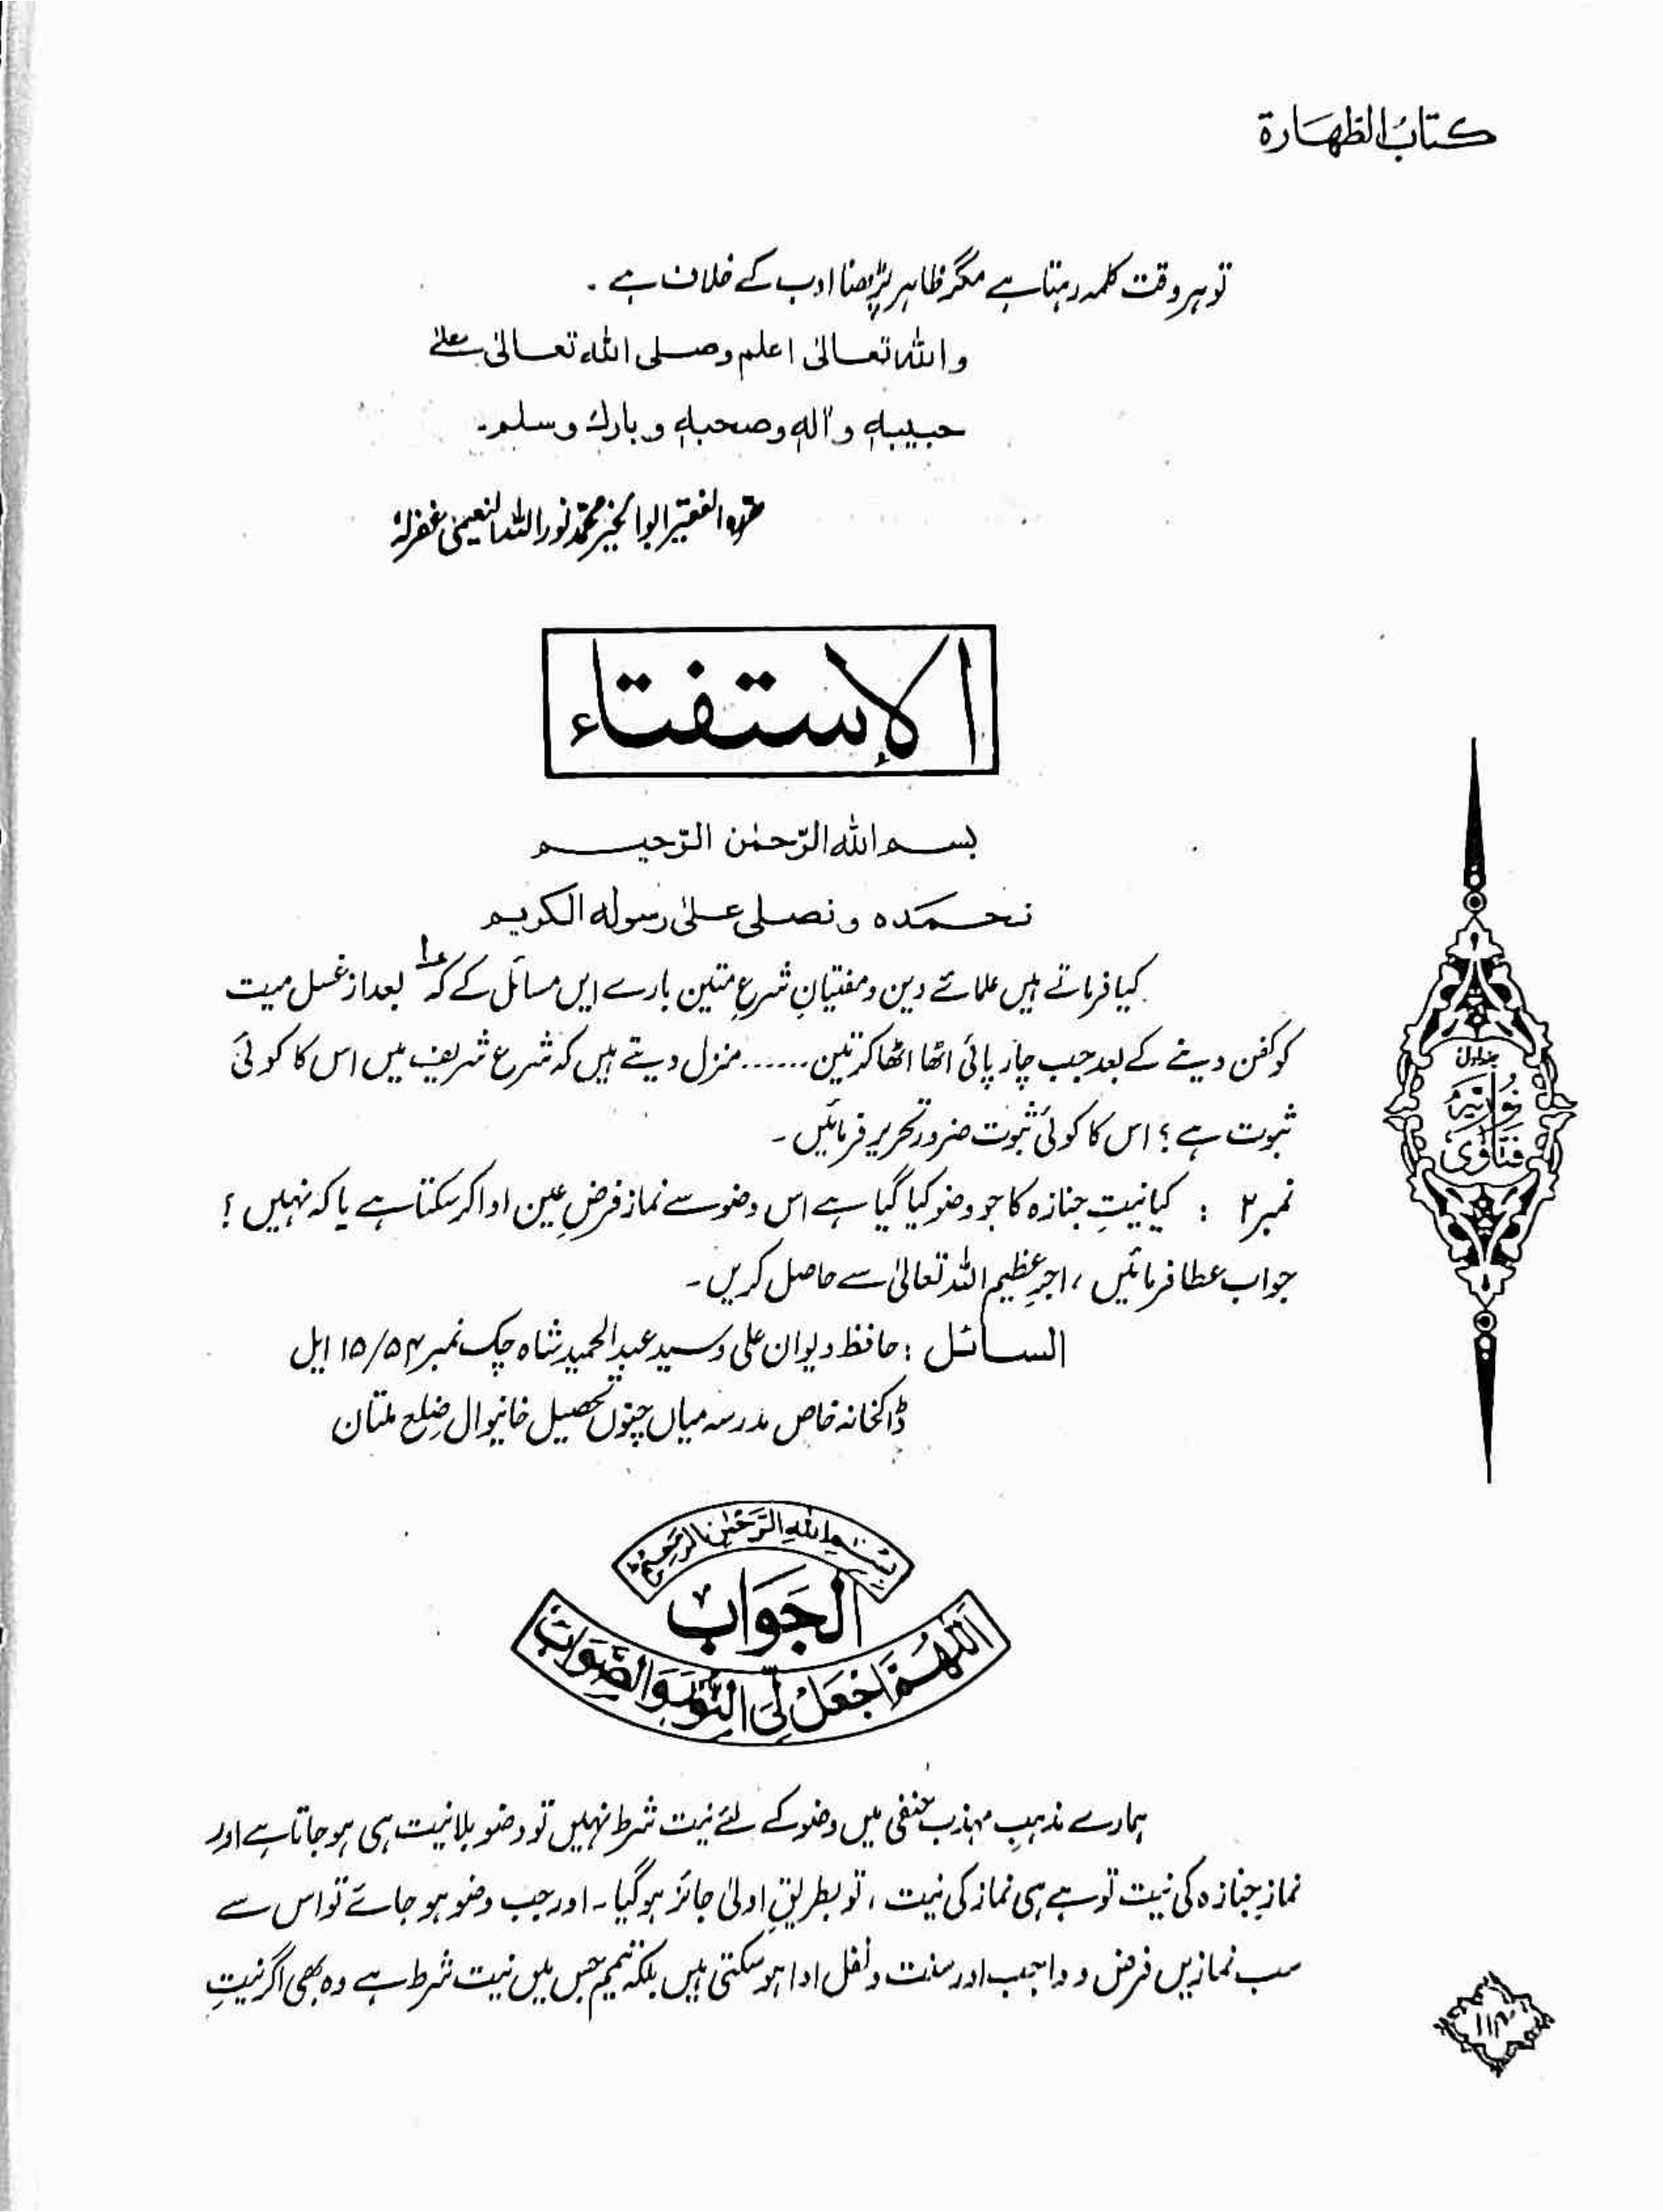 كتابُ الطهَارة
تو ہر وقت کلمہ رہتا ہے مگر ظاہر پڑھنا ادب کے خلاف ہے ۔
واللہ تعالیٰ اعلم وصلی اللہ تعالیٰ علیٰ
حبیبہٖ واٰلہٖ وصحبہٖ وبارك وسلم۔
حررہ الفقیر ابوالخیر محمد نور اللہ النعیمی غفرلہٗ
الإستفتاء
بسم اللہ الرّحمٰن الرّحیم
نحمَدہ ونصلی علیٰ رسولہ الکریم
کیا فرماتے ہیں علمائے دین ومفتیانِ شرعِ متین بارے ایں مسائل کے کہ ۱؎ بعد از غسل میت
کو کفن دینے کے بعد جب چار پائی اٹھا اٹھا کر تین ...... منزل دیتے ہیں کہ شرع شریف میں اس کا کوئی
ثبوت ہے؟ اس کا کوئی ثبوت ضرور تحریر فرمائیں ۔
نمبر ۲ : کیا نیتِ جنازہ کا جو وضو کیا گیا ہے اس وضو سے نماز فرضِ عین ادا کر سکتا ہے یا کہ نہیں ؟
جواب عطا فرمائیں ، اجرِ عظیم اللہ تعالیٰ سے حاصل کریں ۔
السائل : حافظ دیوان علی و سید عبد الحمید شاہ چک نمبر ۱۵/۵۴ ایل
ڈاکخانہ خاص مدرسہ میاں چنوں تحصیل خانیوال ضلع ملتان
جلد اول
نُوریہ
فتاوٰی
بِسْمِ اللهِ الرَّحْمٰنِ الرَّحِیْمِ
الجَوَاب
اَللّٰهُمَّ اجْعَلْ لِیَ النُّوْرَ وَالصَّوَابَ
ہمارے مذہبِ مہذب حنفی میں وضو کے لئے نیت شرط نہیں تو وضو بلانیت ہی ہو جاتا ہے اور
نمازِ جنازہ کی نیت تو ہے ہی نماز کی نیت ، تو بطریقِ اولیٰ جائز ہو گیا ۔ اور جب وضو ہو جائے تو اس سے
سب نمازیں فرض و واجب اور سنت و نفل ادا ہو سکتی ہیں بلکہ تیمم جس میں نیت شرط ہے وہ بھی اگر نیتِ